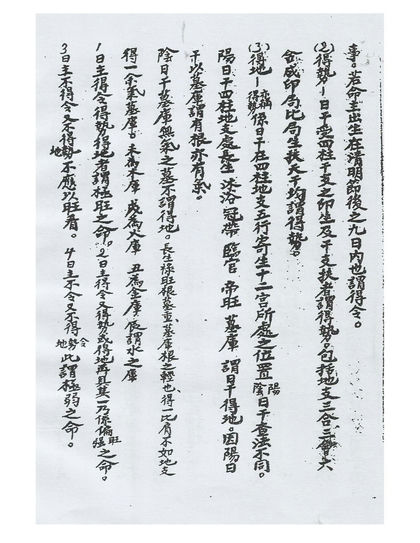 事。若命主出生在清明節後之九日內也謂得令。
(2)得勢－日干受四柱干支之印生及干支扶者謂得勢。包括地支三合三會六
合成印局比局生扶天干均謂得勢。
(3)得地－亦稱得氣係日干在四柱地支五行寄生十二宮所處之位置陰陽日干查法不同。
陽日干四柱地支處長生 沐浴 冠帶 臨官 帝旺 墓庫 謂日干得地。因陽日
干以墓庫謂有根亦有氣。
陰日干墓庫無氣之墓不謂得地。長生祿旺根基重,墓庫根之輕也,得一比肩不如地支
得一余氣墓庫。未為木庫 戌為火庫 丑為金庫 辰謂水之庫
1日主得令得勢得地者謂極旺之命。2日主得令又得勢或得地再且其一乃係偏旺強之命。
3日主不得令又不得勢地不應以旺看。 4日主不令又不得勢令地此謂極弱之命。